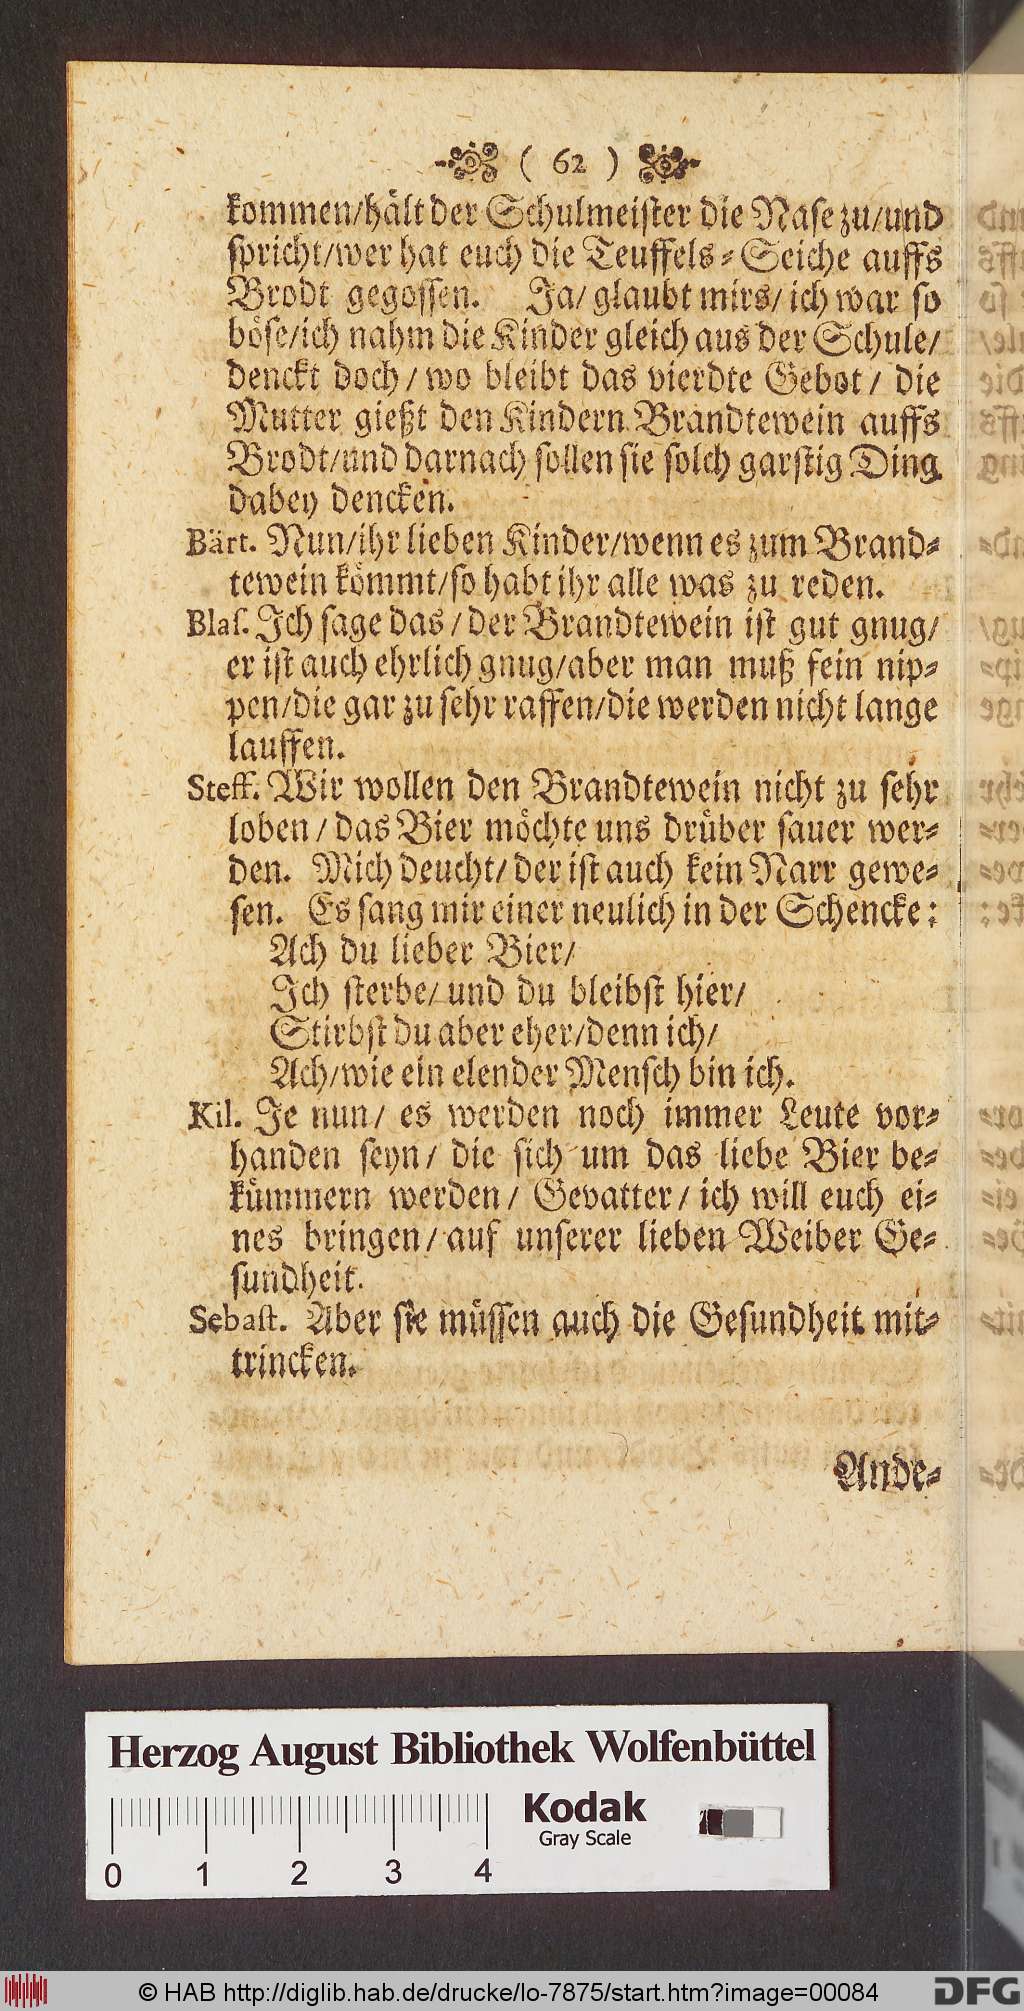 ( 62 )
kommen/hält der Schulmeister die Nase zu/und
spricht/wer hat euch die Teuffels-Seiche auffs
Brodt gegossen. Ja/ glaubt mirs/ ich war so
böse/ich nahm die Kinder gleich aus der Schule/
denckt doch/ wo bleibt das vierdte Gebot/ die
Mutter gießt den Kindern Brandtewein auffs
Brodt/und darnach sollen sie solch garstig Ding
dabey dencken.
Bärt. Nun/ihr lieben Kinder/wenn es zum Brand-
tewein kömmt/so habt ihr alle was zu reden.
Blas. Ich sage das/ der Brandtewein ist gut gnug/
er ist auch ehrlich gnug/aber man muß fein nip-
pen/die gar zu sehr raffen/die werden nicht lange
lauffen.
Steff. Wir wollen den Brandtewein nicht zu sehr
loben/ das Bier möchte uns drüber sauer wer-
den. Mich deucht/ der ist auch kein Narr gewe-
sen. Es sang mir einer neulich in der Schencke:
Ach du lieber Bier/
Ich sterbe/ und du bleibst hier/
Stirbst du aber eher/denn ich/
Ach/wie ein elender Mensch bin ich.
Kil. Je nun/ es werden noch immer Leute vor-
handen seyn/ die sich um das liebe Bier be-
kümmern werden/ Gevatter/ ich will euch ei-
nes bringen/ auf unserer lieben Weiber Ge-
sundheit.
Sebast. Aber sie müssen auch die Gesundheit mit-
trincken.
Ande-
Herzog August Bibliothek Wolfenbüttel
Kodak
Gray Scale
0 1 2 3 4
© HAB http://diglib.hab.de/drucke/lo-7875/start.htm?image=00084
DFG